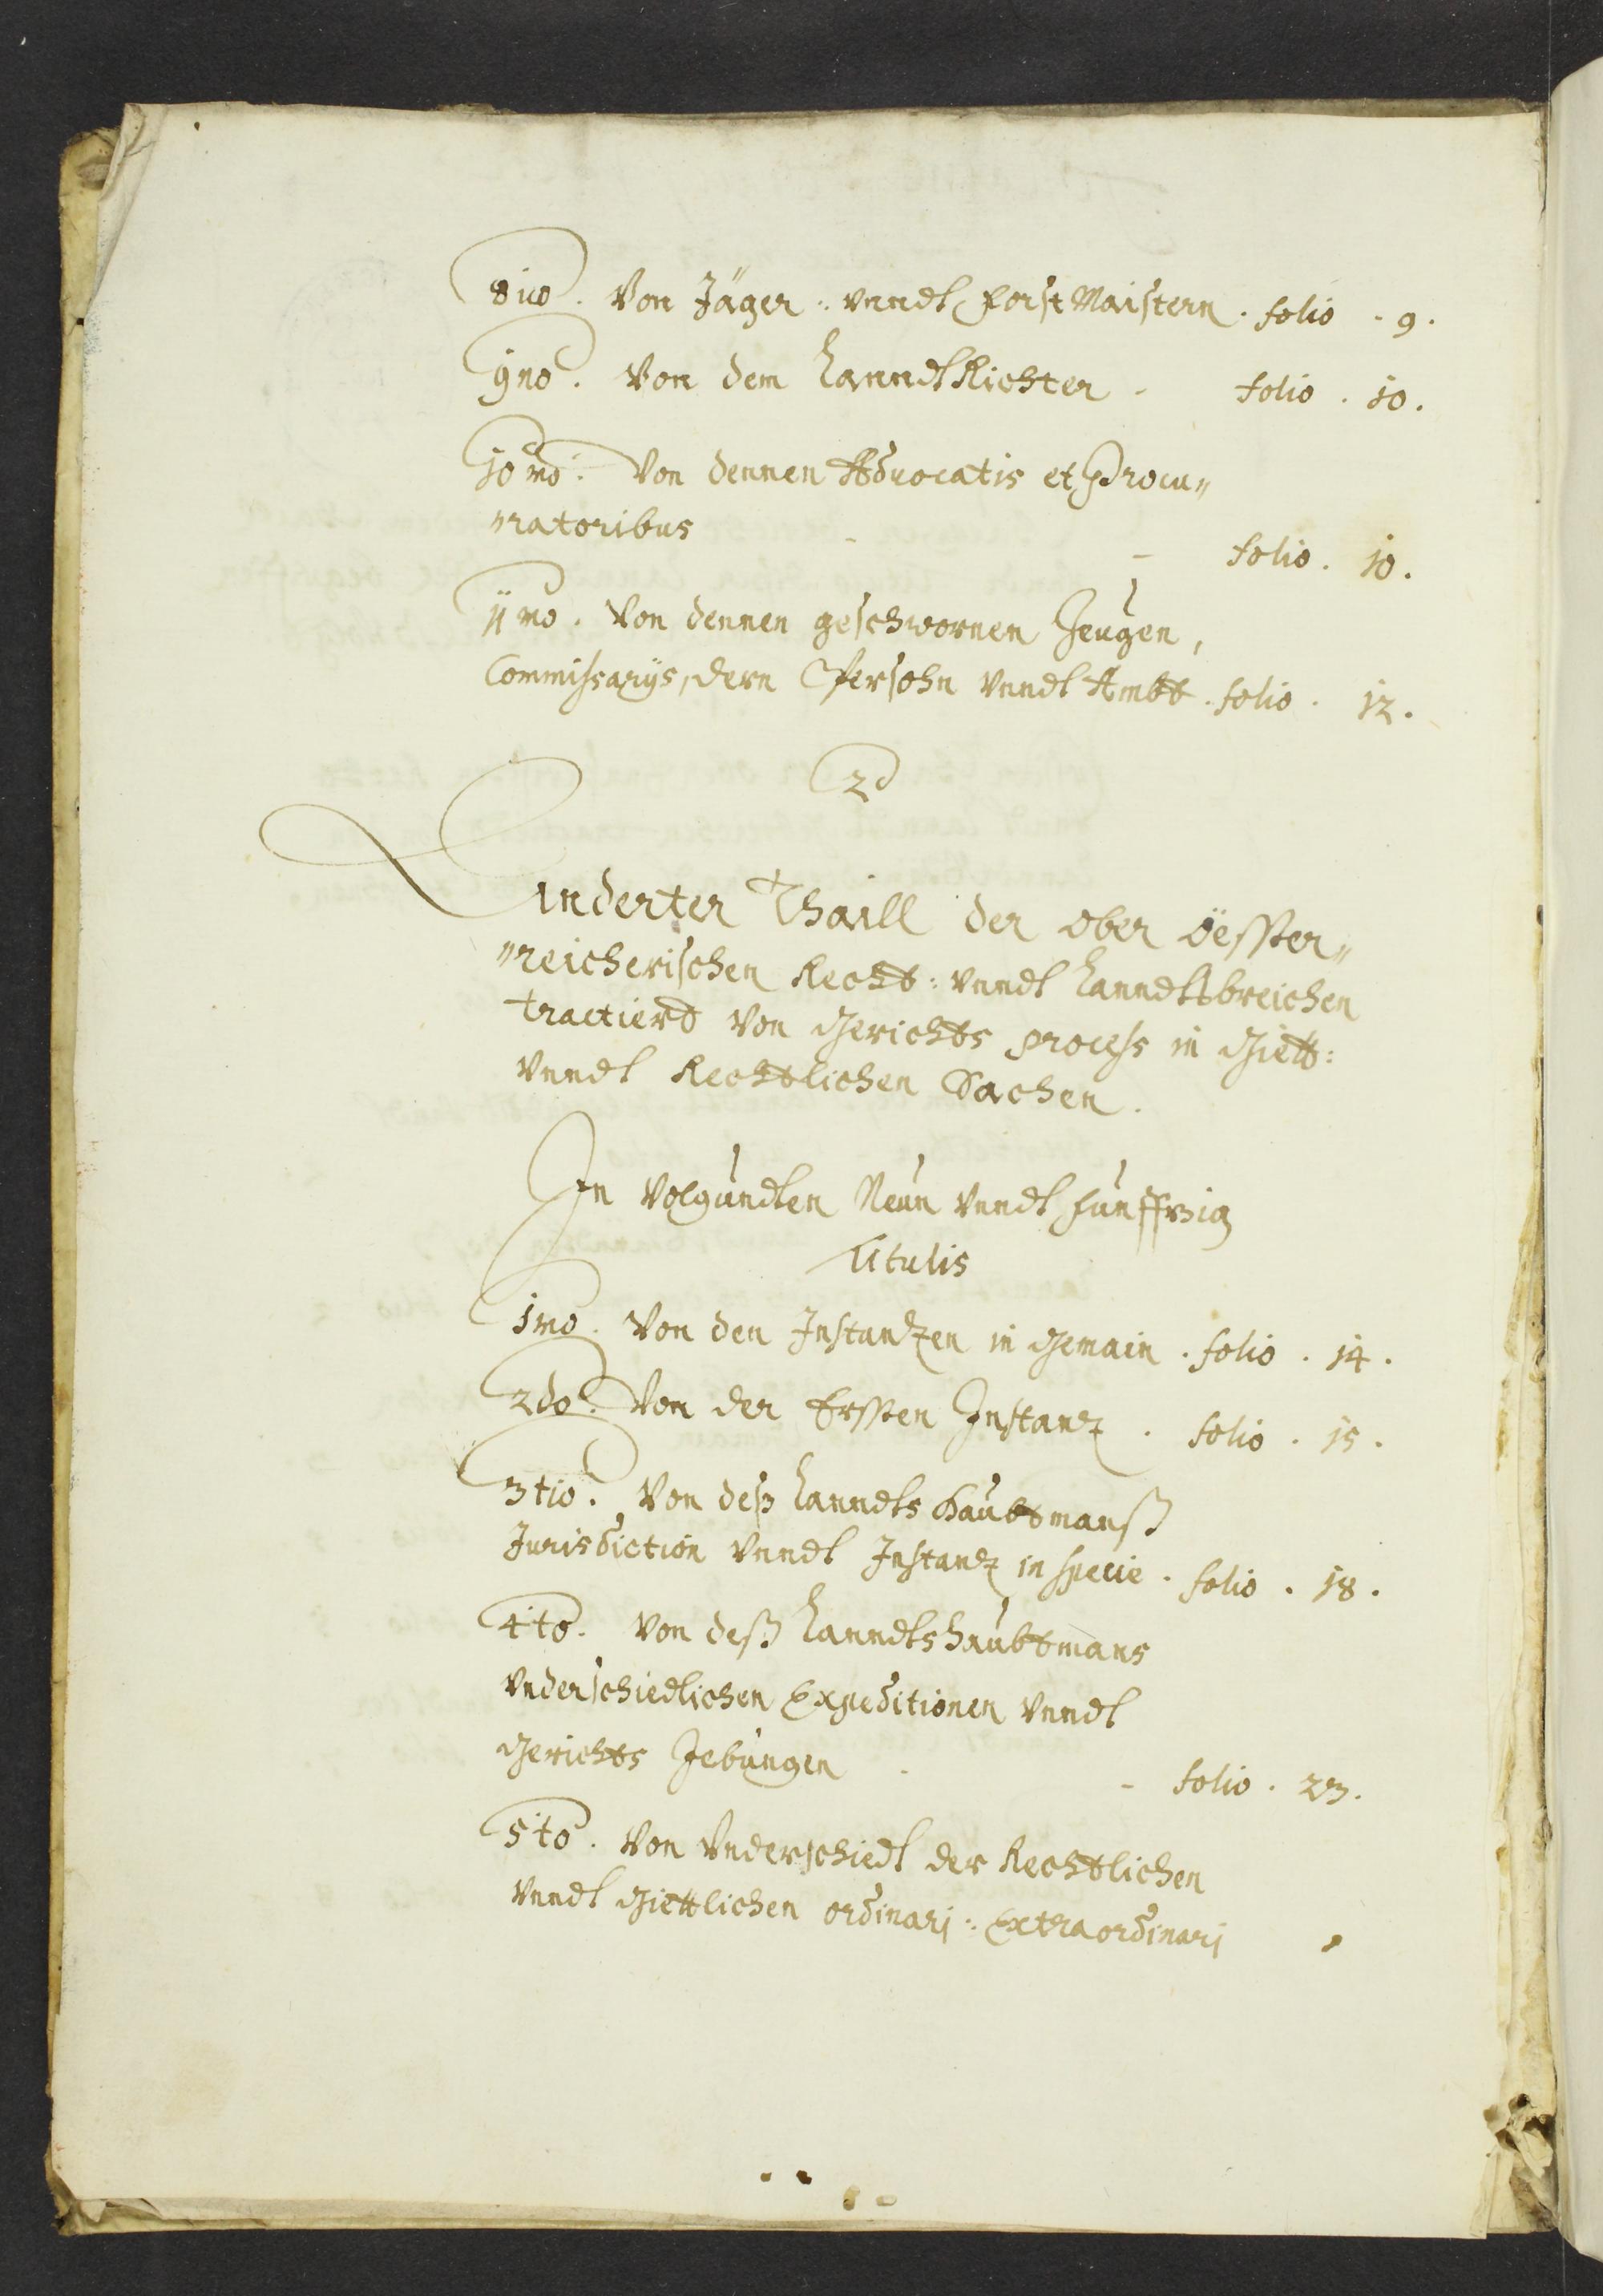 8uo. Von Jäger: vnndt Forst Maistern. folio. 9.
9no. Von dem Lanndt Richter. folio. 10.
10mo. Von dennen Advocatis et Procu„
„ratoribus - folio. 10.
11mo. Von dennen geschwornen Zeugen,
Commissarÿs, dern Persohn vnndt Ambt. folio. 12.
2
Anderter Thaill der ober Öesster„
„reicherischen Recht: vnndt Lanndtsbreichen
tractiert von Gerichts process in Giett:
vnndt Rechtlichen Sachen.
In volgundten Neun vnndt Funffzig
Titulis
1mo. Von den Instantzen in Gemain. folio. 14.
2do. Von der Ersten Instantz. folio. 15.
3tio. Von deß Lanndts Haubtmanß
Jurisdiction vnndt Instantz in specie. folio. 18.
4to. Von deß Lanndtshaubtmans
vnderschiedlichen Expeditionen vnndt
Gerichts Iebungen - folio. 23.
5to. Von Vnderschiedt der Rechtlichen
vnndt Giettlichen ordinari: Extraordinari